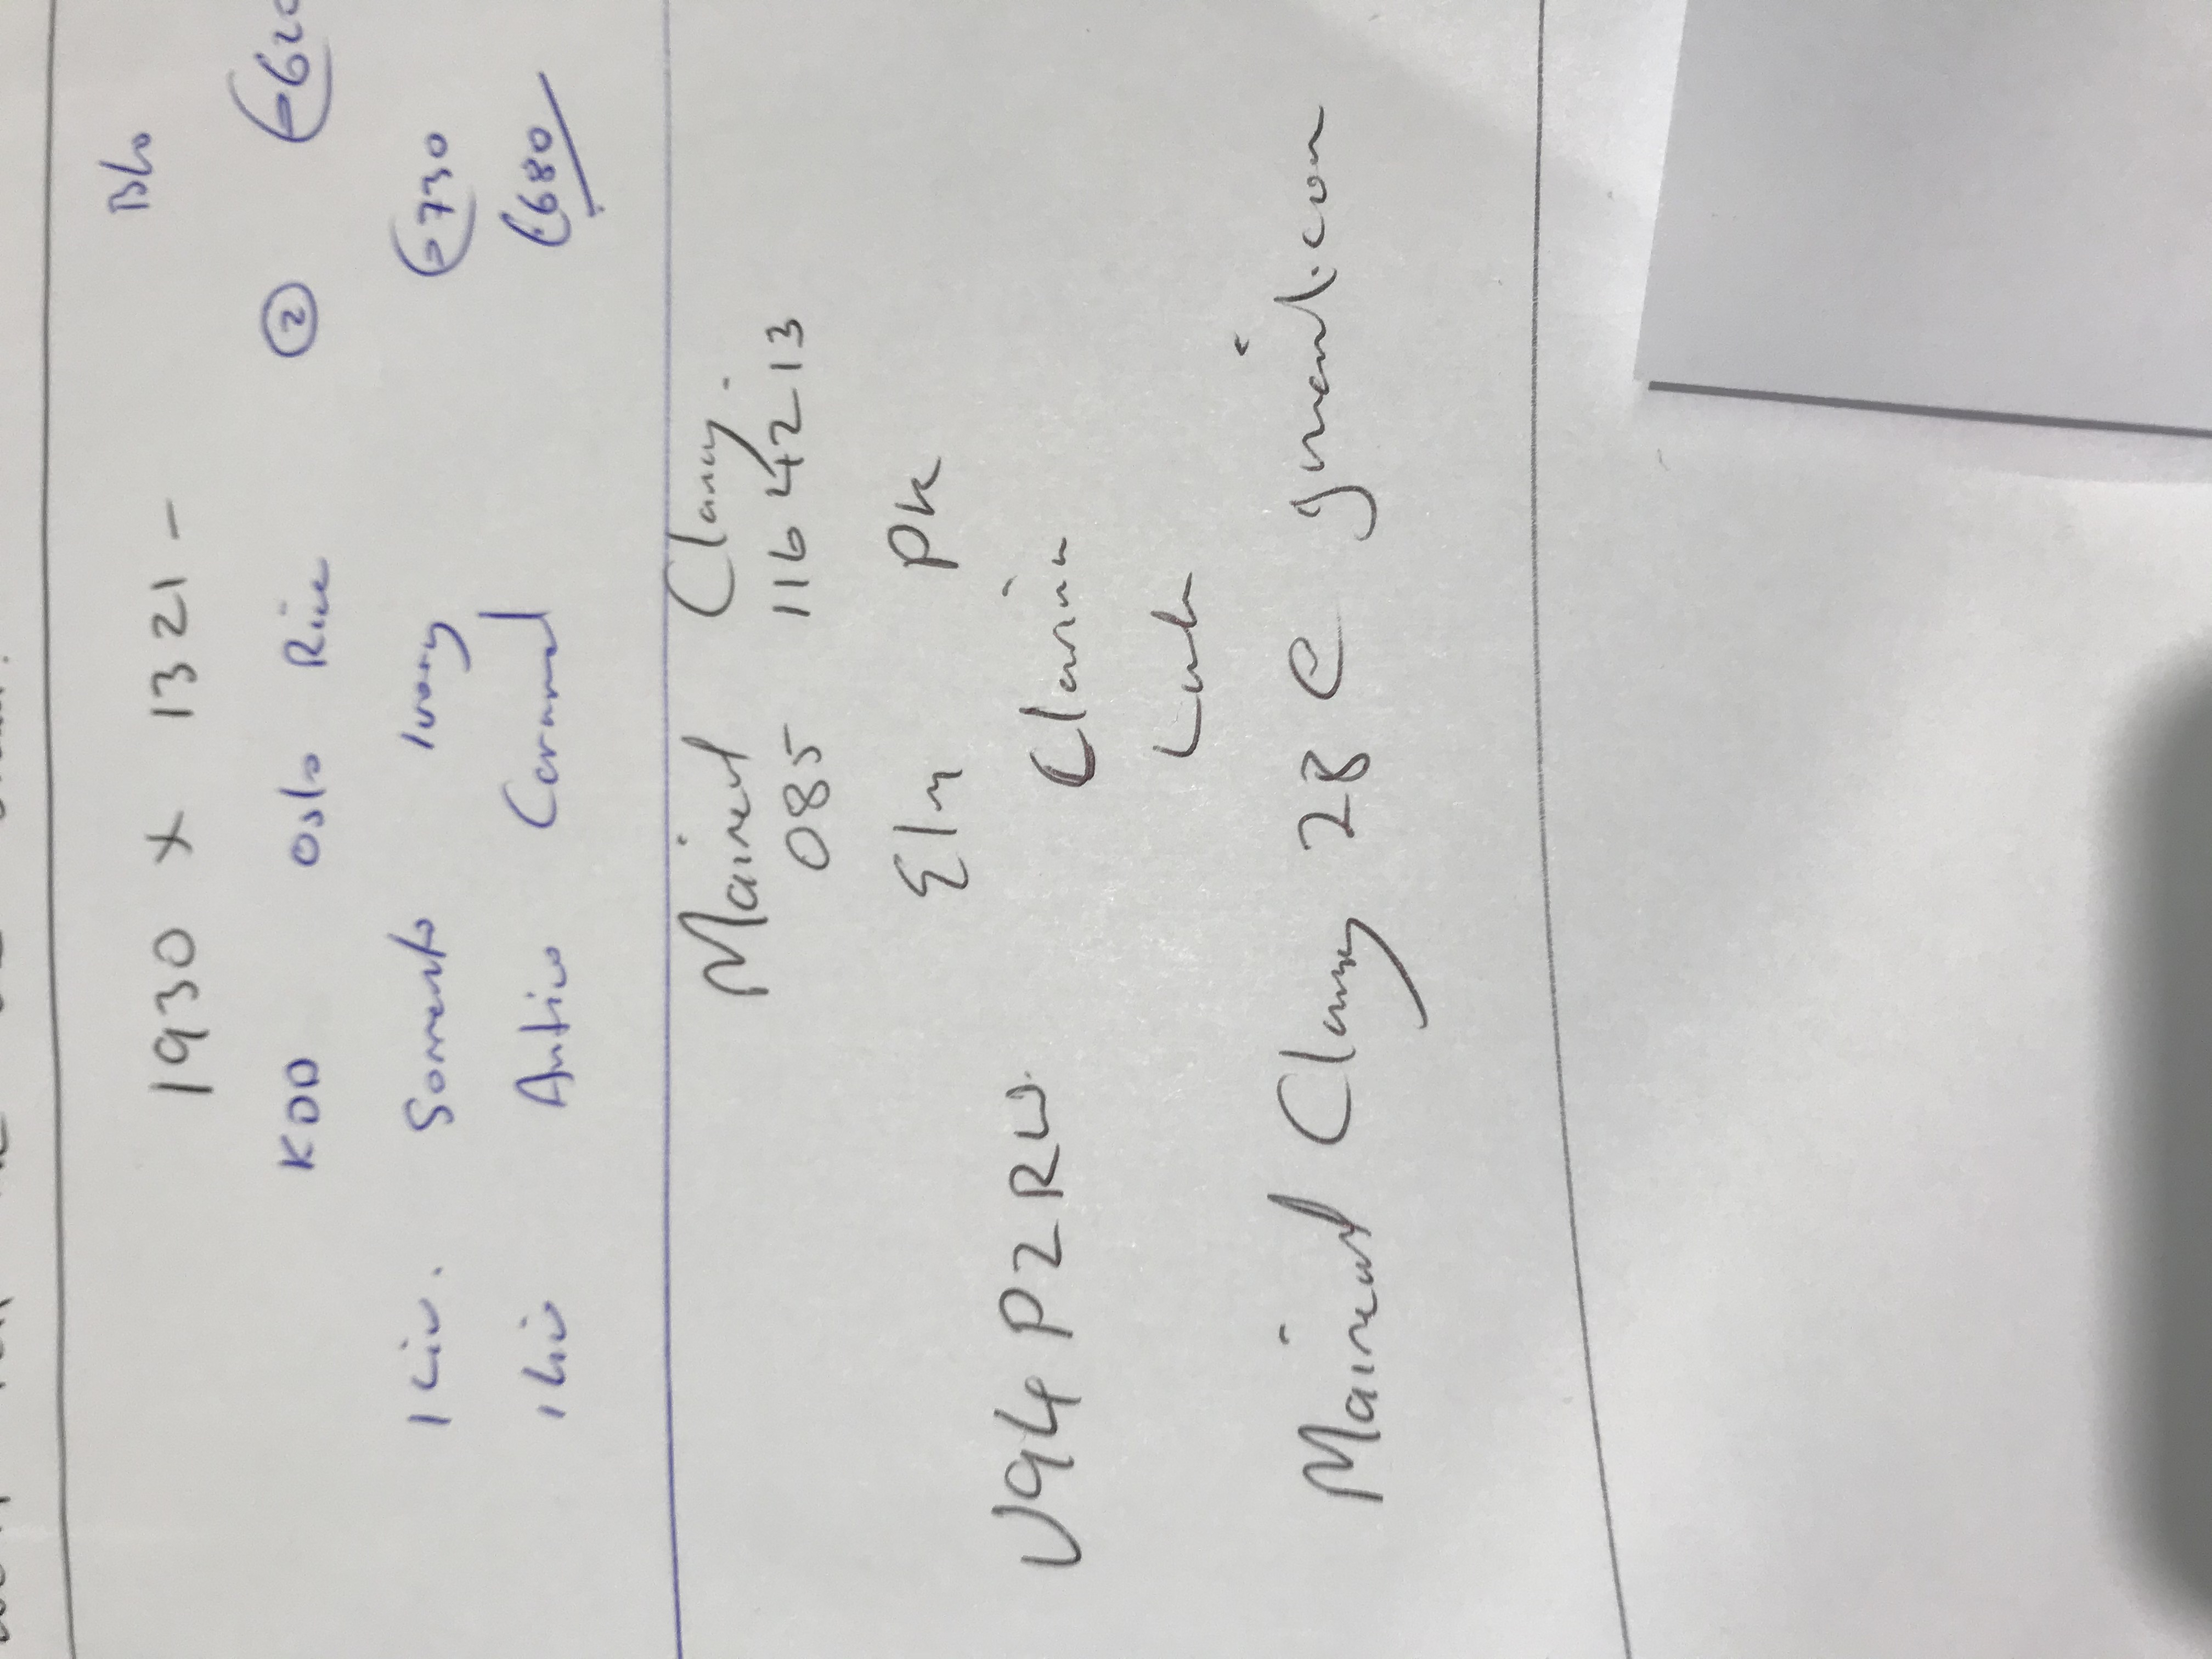 1930 x 1321 -
KDD Oslo Rice ② €620
1 Liv. Sorrento Ivory €730
1 Liv Antico Caramel €680
Mairead Clancy.
085 1164213
Elm Pk
V94 P2RW. Clarina
Limk
Mairead Clancy 28 @ gmail.com